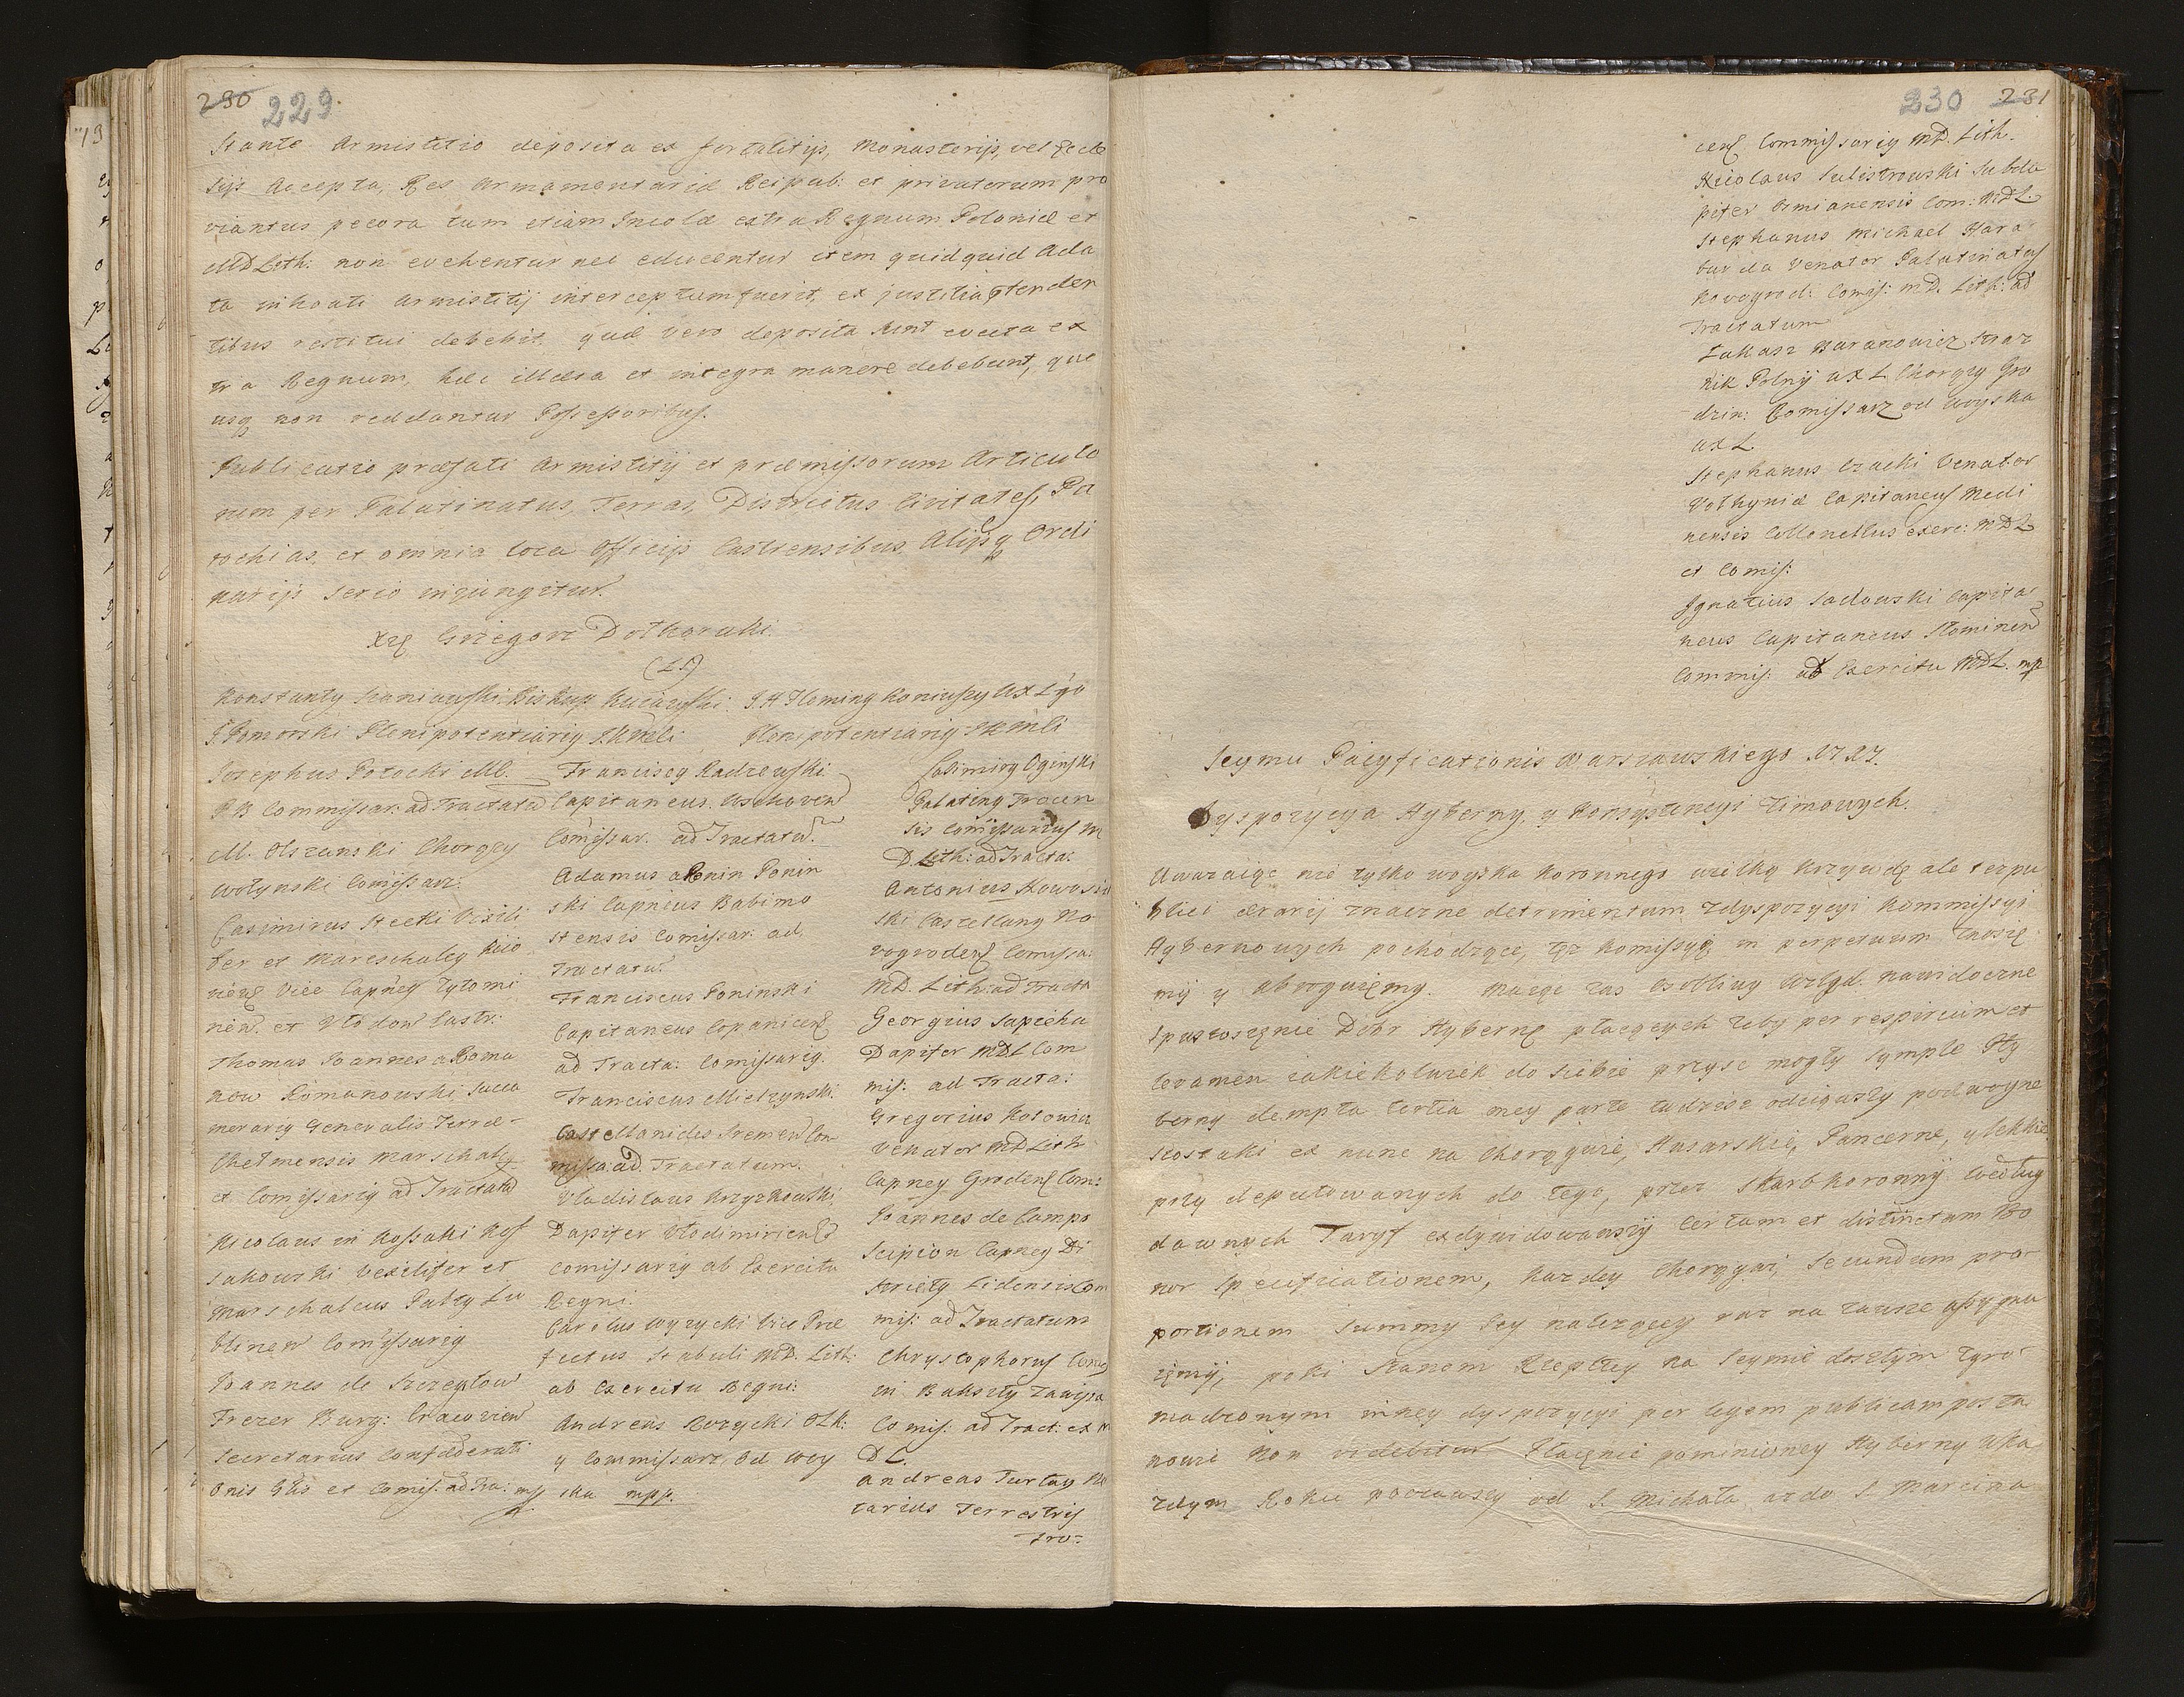 230 229.
Stante Armistitio deposita ex fortalitijs, Monasterijs, vel Eccle
sijs Accepta, Res Armamentariæ Reipub: et privatorum pro
viantus pecora tum etiam Incolæ extra Regnum Poloniæ et
MDLith: non evehentur nec educentur item quidquid Ada
ta inhoati Armistitij interceptum fuerit, ex justitia
tibus restitui debebit, quæ vero deposita sunt evecta ex
tra Regnum, hæc illæsa et integra manere debebunt, quo
usq non reddantur Possessoribus.
Publicatio præfati Armistitij et præmissorum Articulo
rum per Palatinatus, Terras, Districtus Civitates, Pa
rochias, et omnia loca Officijs Castrensibus Alijsq Ordi
narijs serio injungitur.
Xże Grzegorz Dołhoruki.
(LS)
Konstanty Szaniawski Biskup Kuiawski
J. Pomorski Plenipotentiarij
J. H Fleming Koniuszy WXL
Plenipotentiarij
Josephus Potocki
Commissar: ad Tractatu
M. Olszanski Chorąży
Wołynski Comissarz:
Casimirus Stecki Vexili
fer et Mareschaleg Kiio
Vice Capney Zytomi
et Włodow Castr:
Thomas Joannes a Roma
now Romanowski Succa
merarij Generalis Terræ
Chelmensis Marschal
et Comissarij ad Tractatu
Nicolaus in Kossaki Kos
sakowski Vexilifer et
Marschaleus Paltij Lu
blinen Comissarij
Joannes de Szczeptow
Frezer Burg: Cracovien
Secretarius Confæderati
onis Glis et Comis: ad Tra: mp
Franciscg Radzewski
Capitaneus Wschoven
Comissar. ad Tractatu.
Adamus a Ponin Ponin
ski Capneus Babimo
stensis Comissar: ad
Tractatu.
Franciscus Poninski
Capitaneus Copanicen
ad Tracta: Comissarij
Franciscus Mielzynski
Castellanides Sremen Com
missa: ad Tractatum.
Vladislaus Krzyzkowski
Dapifer Vlodimirien
Comissarij ab Exercitu
Regni.
Carolus Wyzycki Vice Præ
fectus Stabuli MD. Lith:
ab Exercitu Regni:
Andreas Rozycki
y Commissarz od Woy
ska mpp.
Casimirg Oginski
Palating Trocen
sis Comissarius M
D Lith: ad Tracta:
Antonius
ski Castellang No
vogroden Comissa:
MD. Lith: ad Tracta
Georgius Sapieha
Dapifer MDL Com
mis: ad Tracta:
Gregorius Kotowicz
Venator MD Lith
Capney Groden Com:
Joannes de Campo
Scipion Capney Di
strictg Lidensis Com
mis: ad Tractatum
Chrystophorus Comes
in Bakszty Zawisza
Comis: ad Tract: ex M
DL.
Andreas No
tarius Terrestris
Tro:
230 231
cens Commissarij MD. Lith.
Nicolaus Sulistrowski Subda
pifer Osmianensis Com: MDL
Stephanus Michael Hara
burda Venator Palatinatus
Novogrod: Comis: MD. Lith: ad
Tractatum
Łukasz Baranowicz Straz
nik Polny WXL Chorąży Gro
dzin: Komissarz od Woyska
WXL.
Stephanus Czacki Venator
Volhyniæ Capitaneus Medi
nensis Collonellus exerc: MDL
et Comis:
Ignatius Sadowski Capita
neus Capitaneus Słominen
Commis: ab Exercitu MDL. mp
Seymu Pacyficationis Warszawskiego 1717.
Dyspozycya Hyberny, y Konsystencyi Zimowych.
Uwazaiąc nie tylko woyska Koronnego wielką krzywdę ale tez pu
blici ærarij znaczne detrimentum z dyspozycyi Kommissyi
Hybernowych pochodzące, tęż Komissyę in perpetuum znosię
my y abroguięmy. Maiąc zas osobliwy wzgląd na widoczne
spustoszęnie Dobr Hybernę płacących zeby per respirium et
levamen iakiekolwiek do siebie przysc mogły symple Hy
berny dempta tertia iney parte tudziesz odciąwszy podwoyne
Kostaki ex nunc na Chorągwie, Husarskie, Pancerne, y lekkie
przy deputowanych do tego, przez Skarb Koronny według
dawnych Taryf exdywidowawszy certam et distinctam
nor specificationem, kazdey Chorągwi, secundum pro
portionem summy Iey nalezącey raz na zawsze assygnu
ięmy, poki Stanom Rzeptey na Seymie doszłym zgro
madzonym inney dyspozycyi per legem publicam posta
nowic non videbitur Płacęnie pominioney Hyberny w ka
zdym Roku poczawszy od S. Michała az do S. Marcina